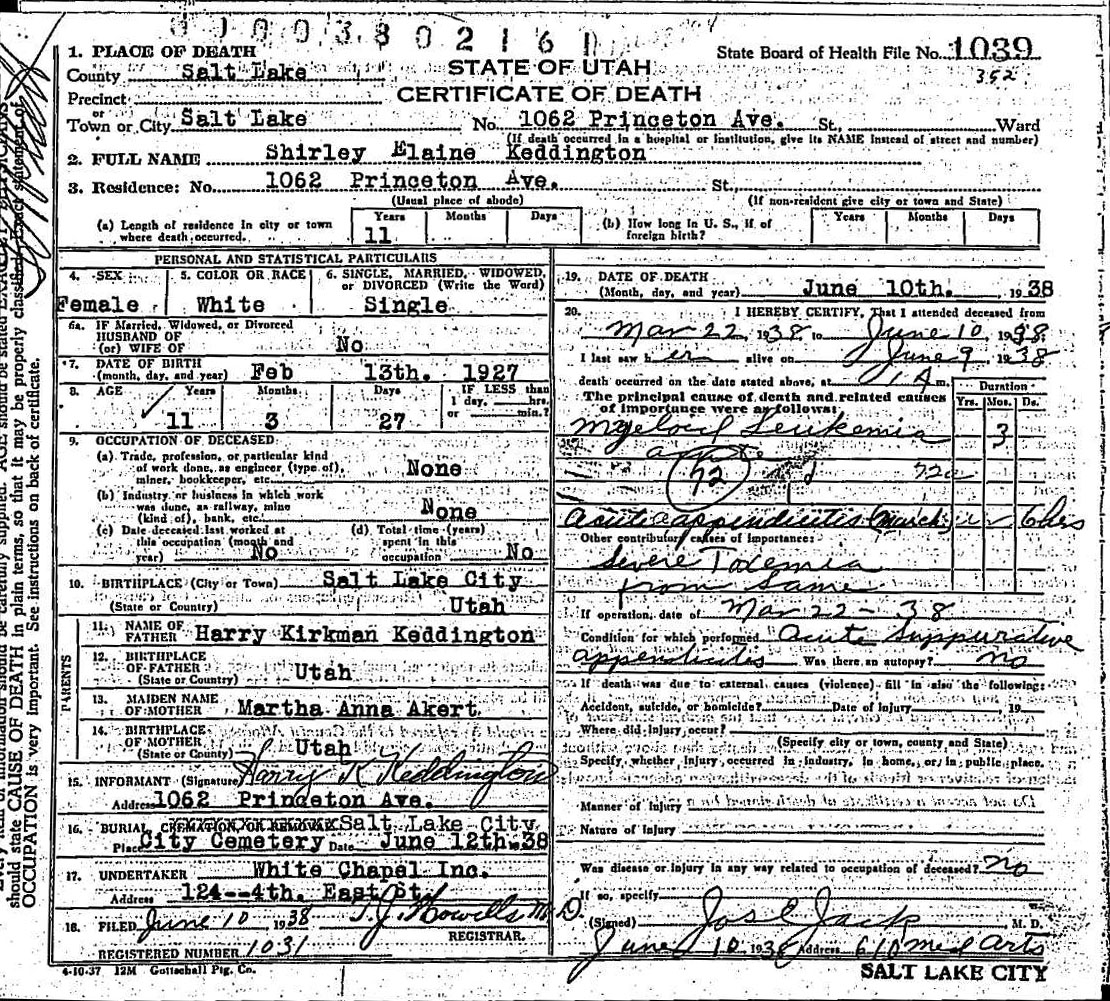 0100380216
1. PLACE OF DEATH
State Board of Health File No. 1039
352
County Salt Lake
STATE OF UTAH
CERTIFICATE OF DEATH
Precinct
or
Town or City Salt Lake No. 1062 Princeton Ave. St, Ward
(If death occurred in a hospital or institution, give its NAME instead of street and number)
2. FULL NAME Shirley Elaine Keddington
3. Residence: No. 1062 Princeton Ave. St,
(Usual place of abode) (If non-resident give city or town and State)
(a) Length of residence in city or town where death occurred.
Years Months Days
11
(b) How long in U. S., if of foreign birth?
Years Months Days
PERSONAL AND STATISTICAL PARTICULARS
4. SEX 5. COLOR OR RACE 6. SINGLE, MARRIED, WIDOWED, or DIVORCED (Write the Word)
Female White Single
6a. IF Married, Widowed, or Divorced
HUSBAND OF
(or) WIFE OF No
7. DATE OF BIRTH
(month, day, and year) Feb 13th. 1927
8. AGE Years Months Days IF LESS than
1 day, hrs.
or min.?
11 3 27
9. OCCUPATION OF DECEASED
(a) Trade, profession, or particular kind
of work done, as engineer (type of),
miner, bookkeeper, etc. None
(b) Industry or business in which work
was done, as railway, mine
(kind of), bank, etc. None
(c) Date deceased last worked at
this occupation (month and
year) No
(d) Total time (years)
spent in this
occupation No
10. BIRTHPLACE (City or Town) Salt Lake City
(State or Country) Utah
PARENTS
11. NAME OF
FATHER Harry Kirkman Keddington
12. BIRTHPLACE
OF FATHER
(State or Country) Utah
13. MAIDEN NAME
OF MOTHER Martha Anna Akert
14. BIRTHPLACE
OF MOTHER
(State or County) Utah
15. INFORMANT (Signature) Harry K Keddington
Address 1062 Princeton Ave.
16. BURIAL, CREMATION, OR REMOVAL Salt Lake City
Place City Cemetery Date June 12th. 38
17. UNDERTAKER White Chapel Inc.
Address 124--4th. East St.
18. FILED June 10 1938 T. J. Howells M. D.
REGISTRAR.
REGISTERED NUMBER 1031
4-10-37 12M Gottschall Ptg. Co.
19. DATE OF DEATH
(Month, day, and year) June 10th. 1938
20. I HEREBY CERTIFY, That I attended deceased from
Mar 22, 1938 to June 10 1938
I last saw her alive on June 9 1938
death occurred on the date stated above, at 1 A m.
The principal cause of death and related causes
of importance were as follows:
Duration
Yrs. Mos. Ds.
Myeloid Leukemia 3
acute
72 72a
Acute appendicitis (March) 6 hrs
Other contributory causes of importance:
Severe Toxemia
from Same
If operation, date of Mar 22 - 38
Condition for which performed Acute Suppurative
appendicitis Was there an autopsy? no
If death was due to external causes (violence) fill in also the following:
Accident, suicide, or homicide? Date of Injury 19
Where did injury occur?
(Specify city or town, county and State)
Specify whether injury occurred in industry, in home, or in public place.
Manner of Injury
Nature of Injury
Was disease or injury in any way related to occupation of deceased? no
If so, specify
(Signed) Jos E Jack M. D.
June 10, 1938 Address 610 Med Arts
SALT LAKE CITY
should state CAUSE OF DEATH in plain terms, so that it may be properly classified. Exact statement of
OCCUPATION is very important. See instructions on back of certificate.